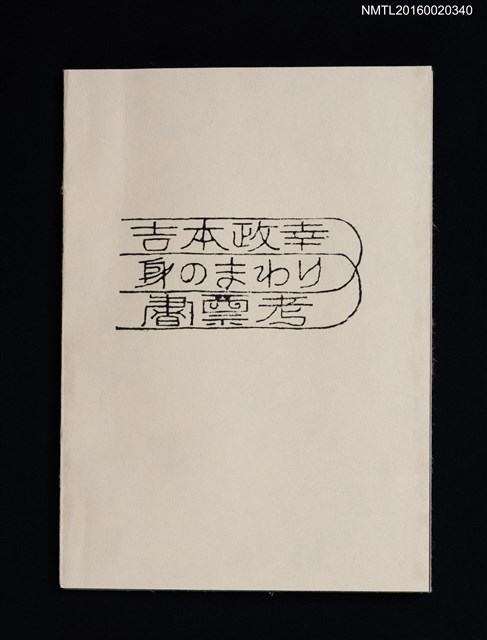 NMTL20160020340
吉本政幸
身のまわり
書票考